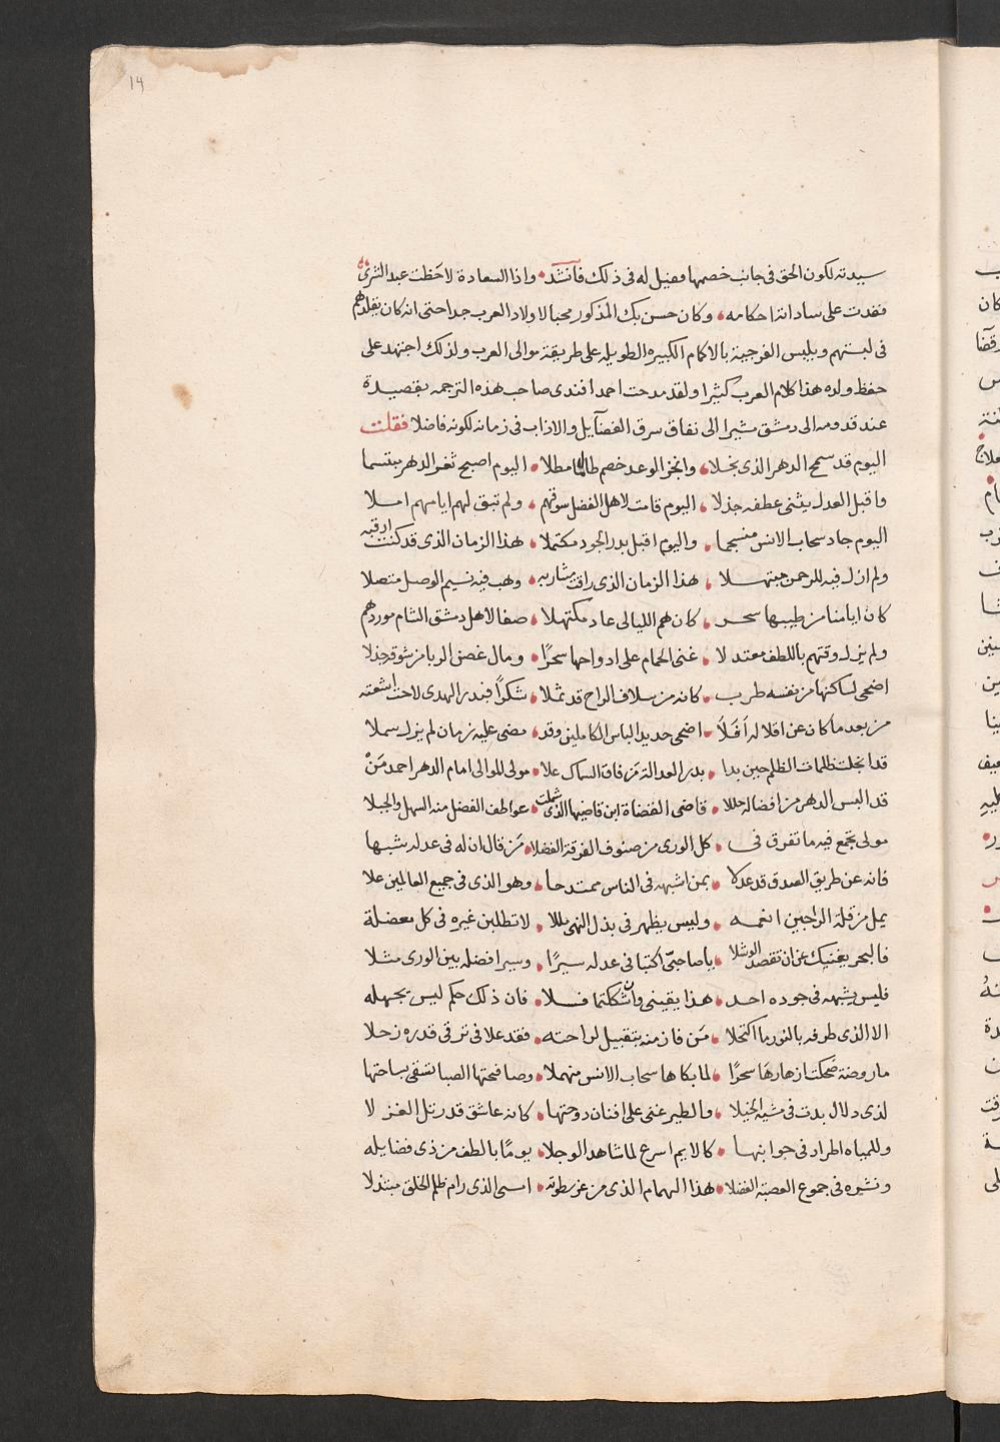 14
سيدته لكون الحق فى جانب خصمها فقيل له فى ذلك فانشد واذا السعادة لاحظت عبد الشرى
نفذت على ساداته احكامه وكان حسن بك المذكور محبا لاولاد العرب جدا حتى انه كان يقلدهم
فى لبستهم ويلبس الفرجية بالاكمام الكبيره الطويله على طريقة موالى العرب ولذلك اجتهد على
حفظ ولده هذا كلام العرب كثيرا ولقد مدحت احمد افندى صاحب هذه الترجمه بقصيدة
عند قدومه الى دمشق مشيرا الى نفاق سوق الفضايل والاداب فى زمانه لكونه فاضلا فقلت
اليوم قد سمح الدهر الذى بخلا وانجز الوعد خصم طالما مطلا اليوم اصبح ثغر الدهر مبتسما
واقبل العدل يثنى عطفه جذلا اليوم قامت لاهل الفضل سوقهم ولم تبق لهم ايامهم املا
اليوم جاد سحاب الانس منسجما واليوم اقبل بدر الجود مكتملا هذا الزمان الذى قد كنت ارقبه
ولم ازل فيه للرحمن مبتهلا هذا الزمان الذى راقت مشاربه وهب فيه نسيم الوصل متصلا
كان ايامنا من طيبها سحر كان هم الليالى عاد مكتهلا صفا لاهل دمشق الشام موردهم
ولم يزل وقتهم باللطف معتدلا غنى الحمام على ادواحها سحرا ومال غصن الربا من شوقه جذلا
اضحى لساكنها من نفسه طرب كانه من سلاف الراح قد ثملا شكرا فبدر الهدى لاحت اشعته
من بعد ما كان عن اقلاله افلا اضحى جديدا لباس الكاملين وقد مضى عليه زمان لم يزل سملا
قد انجلت ظلمات الظلم حين بدا بدر العدالة من فاق السماك علا مولى الموالى امام الدهر احمد من
قد البس الدهر من افضاله حللا قاضى القضاة ابن قاضيها الذى شملت عواطف الفضل منه السهل والجبلا
مولى تجمع فيه ما تفرق فى كل الورى من صنوف الفرقة الفضلا من قال ان له فى عدله شبها
فانه عن طريق الصدق قد عدلا بمن اشبهه فى الناس ممتدحا وهو الذى فى جميع العالمين علا
يمل من قلة الراجين انعمه وليس يظهر فى بذل النهى مللا لا تطلبن غيره فى كل معضلة
فالبحر يغنيك عن ان تقصد الوشلا يا صاحبى اكتبا فى عدله سيرا وسيرا فضله بين الورى مثلا
فليس يشبهه فى جوده احد هذا يقينى وان شككتما فسلا فان ذلك حكم ليس يجهله
الا الذى طرفه بالنور ما اكتحلا من فاز منه بتقبيل لراحته فقد علا فى ترقى قدره زحلا
ما روضة ضحكت ازهارها سحرا لما بكاها سحاب الانس منهملا وصافحتها الصبا تشفى بساحتها
لذى دلال بدت فى مشيه الخيلا والطير غنى على افنان دوحتها كانه عاشق قد رتل الغزلا
وللمياه اطراد فى جوانبها كالايم اسرع لما شاهد الوجلا يوما بالطف من ذى فضايله
ونشره فى جموع العصبة الفضلا هذا الهمام الذى من عز سطوته امسى الذى رام ظلم الخلق مبتذلا